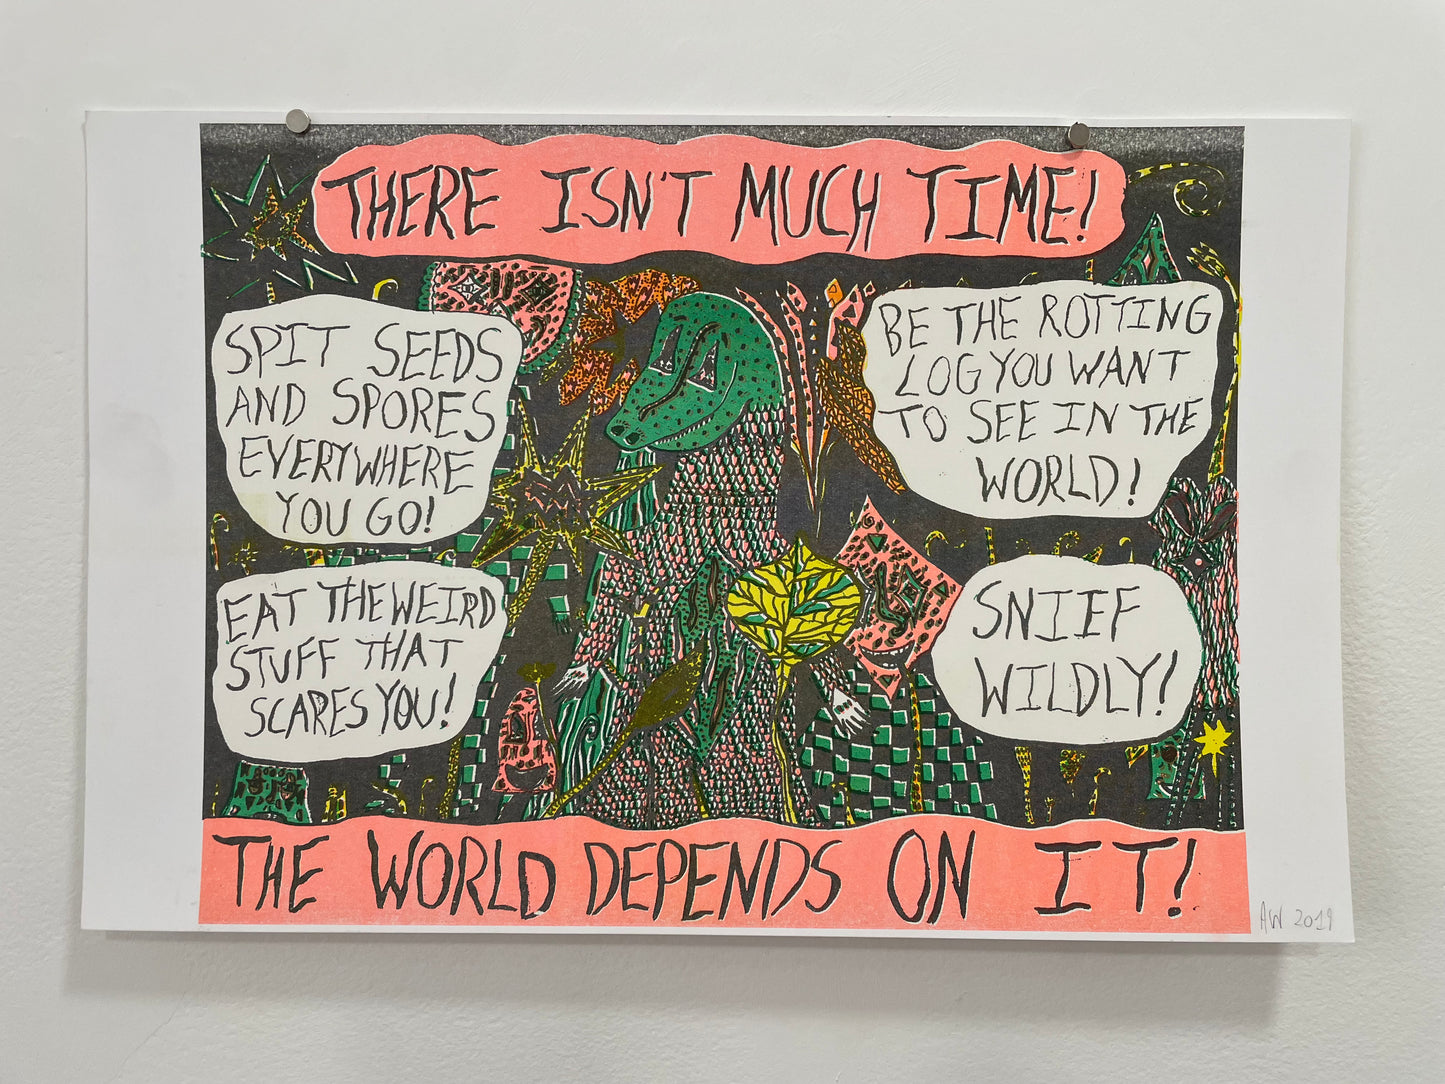 THERE ISN'T MUCH TIME!
SPIT SEEDS
AND SPORES
EVERYWHERE
YOU GO!
BE THE ROTTING
LOG YOU WANT
TO SEE IN THE
WORLD!
EAT THE WEIRD
STUFF THAT
SCARES YOU!
SNIFF
WILDLY!
THE WORLD DEPENDS ON IT!
AW 2019